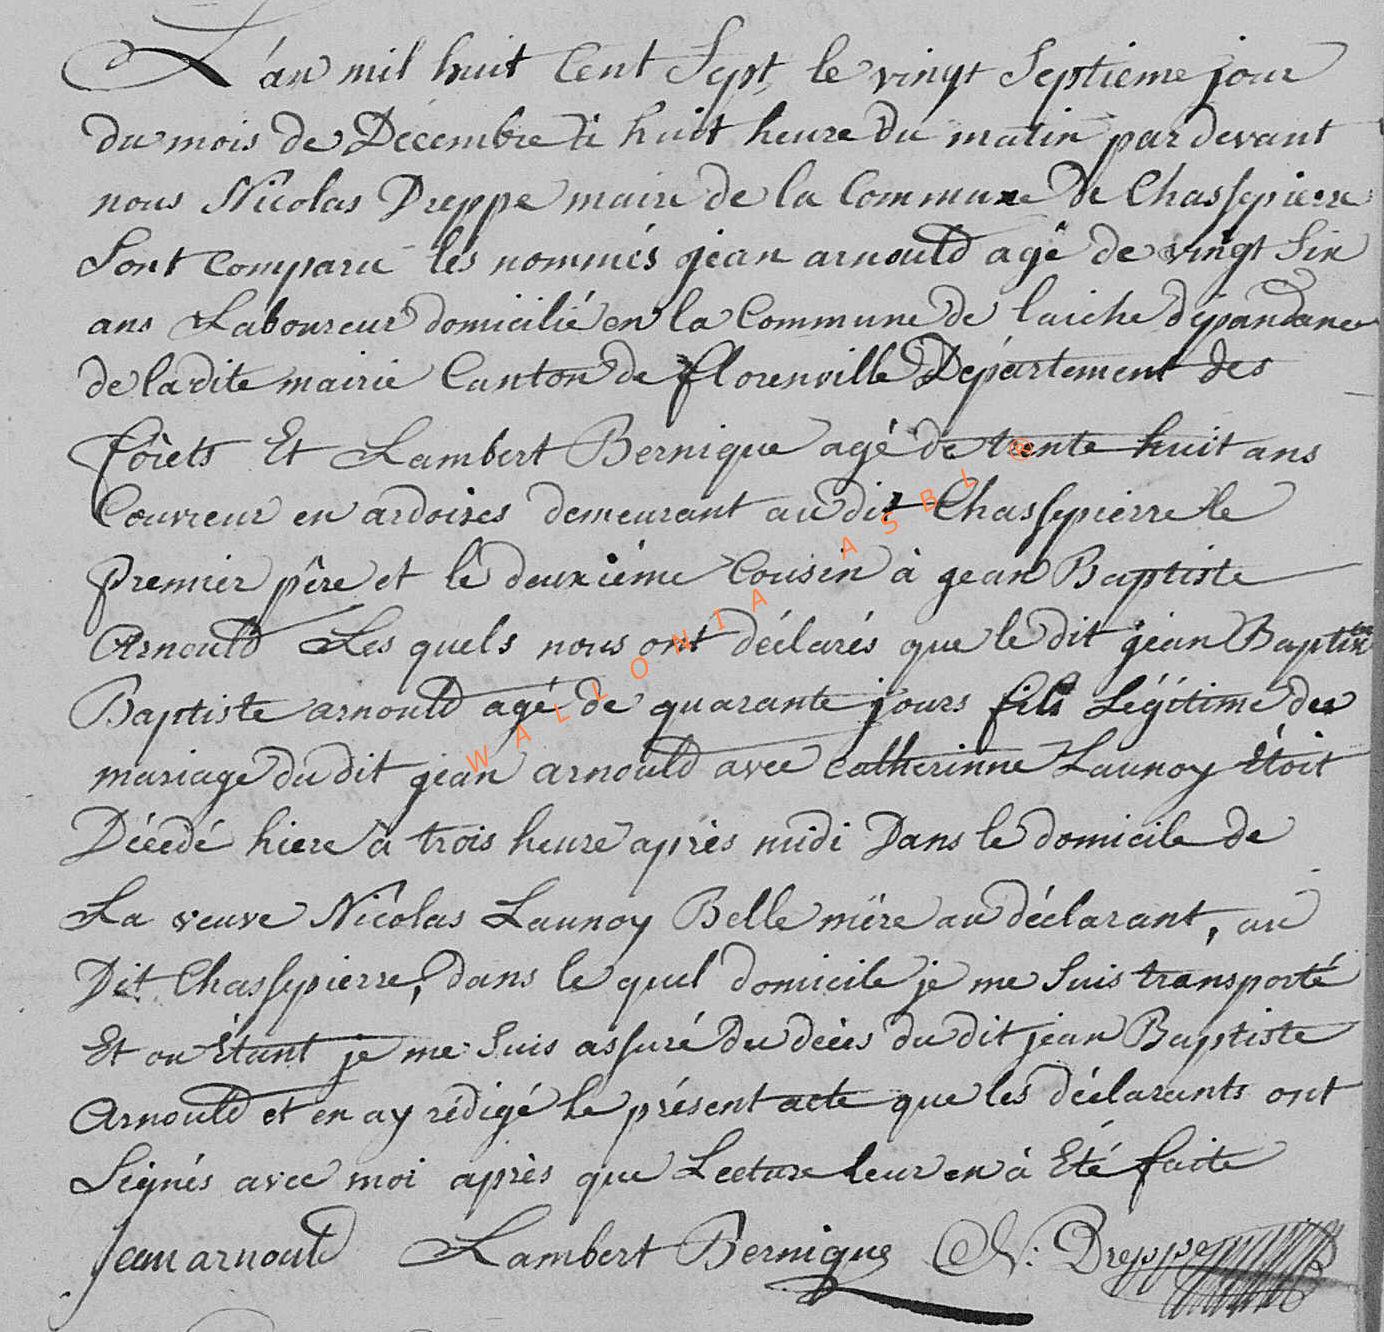 L'an mil huit Cent Sept le vingt Septieme jour
du mois de Décembre à huit heure du matin par devant
nous Nicolas Dreppe maire de la Commune de Chassepierre
Sont Comparu les nommés jean arnould agé de vingt Six
ans Laboureur domicilié en la Commune de laiche dépandance
de la dite mairie Canton de florenville Département des
fôrets Et Lambert Bernique agé de trente huit ans
Couvreur en ardoises demeurant au dit Chassepierre le
Premier pêre et le deuxiéme Cousin à jean Baptiste
Arnould Les quels nous ont déclarés que le dit jean
Baptiste arnould agé de quarante jours fils Légitime des
mariage du dit jean arnould avec Catherinne Launoy Etoit
Décedé hiere à trois heure après midi Dans le domicile de
La veuve Nicolas Launoy Belle mère au déclarant, au
Dit Chassepierre, dans le quel domicile je me Suis transporté
Et ou Etant je me Suis assuré du décés du dit jean Baptiste
Arnould et en ay rédigé le présent acte que les déclarants ont
Signés avec moi après que Lecture leur en à Eté faite
Jean arnould Lambert Bernique N: Dreppe
WALLONIA ASBL ©